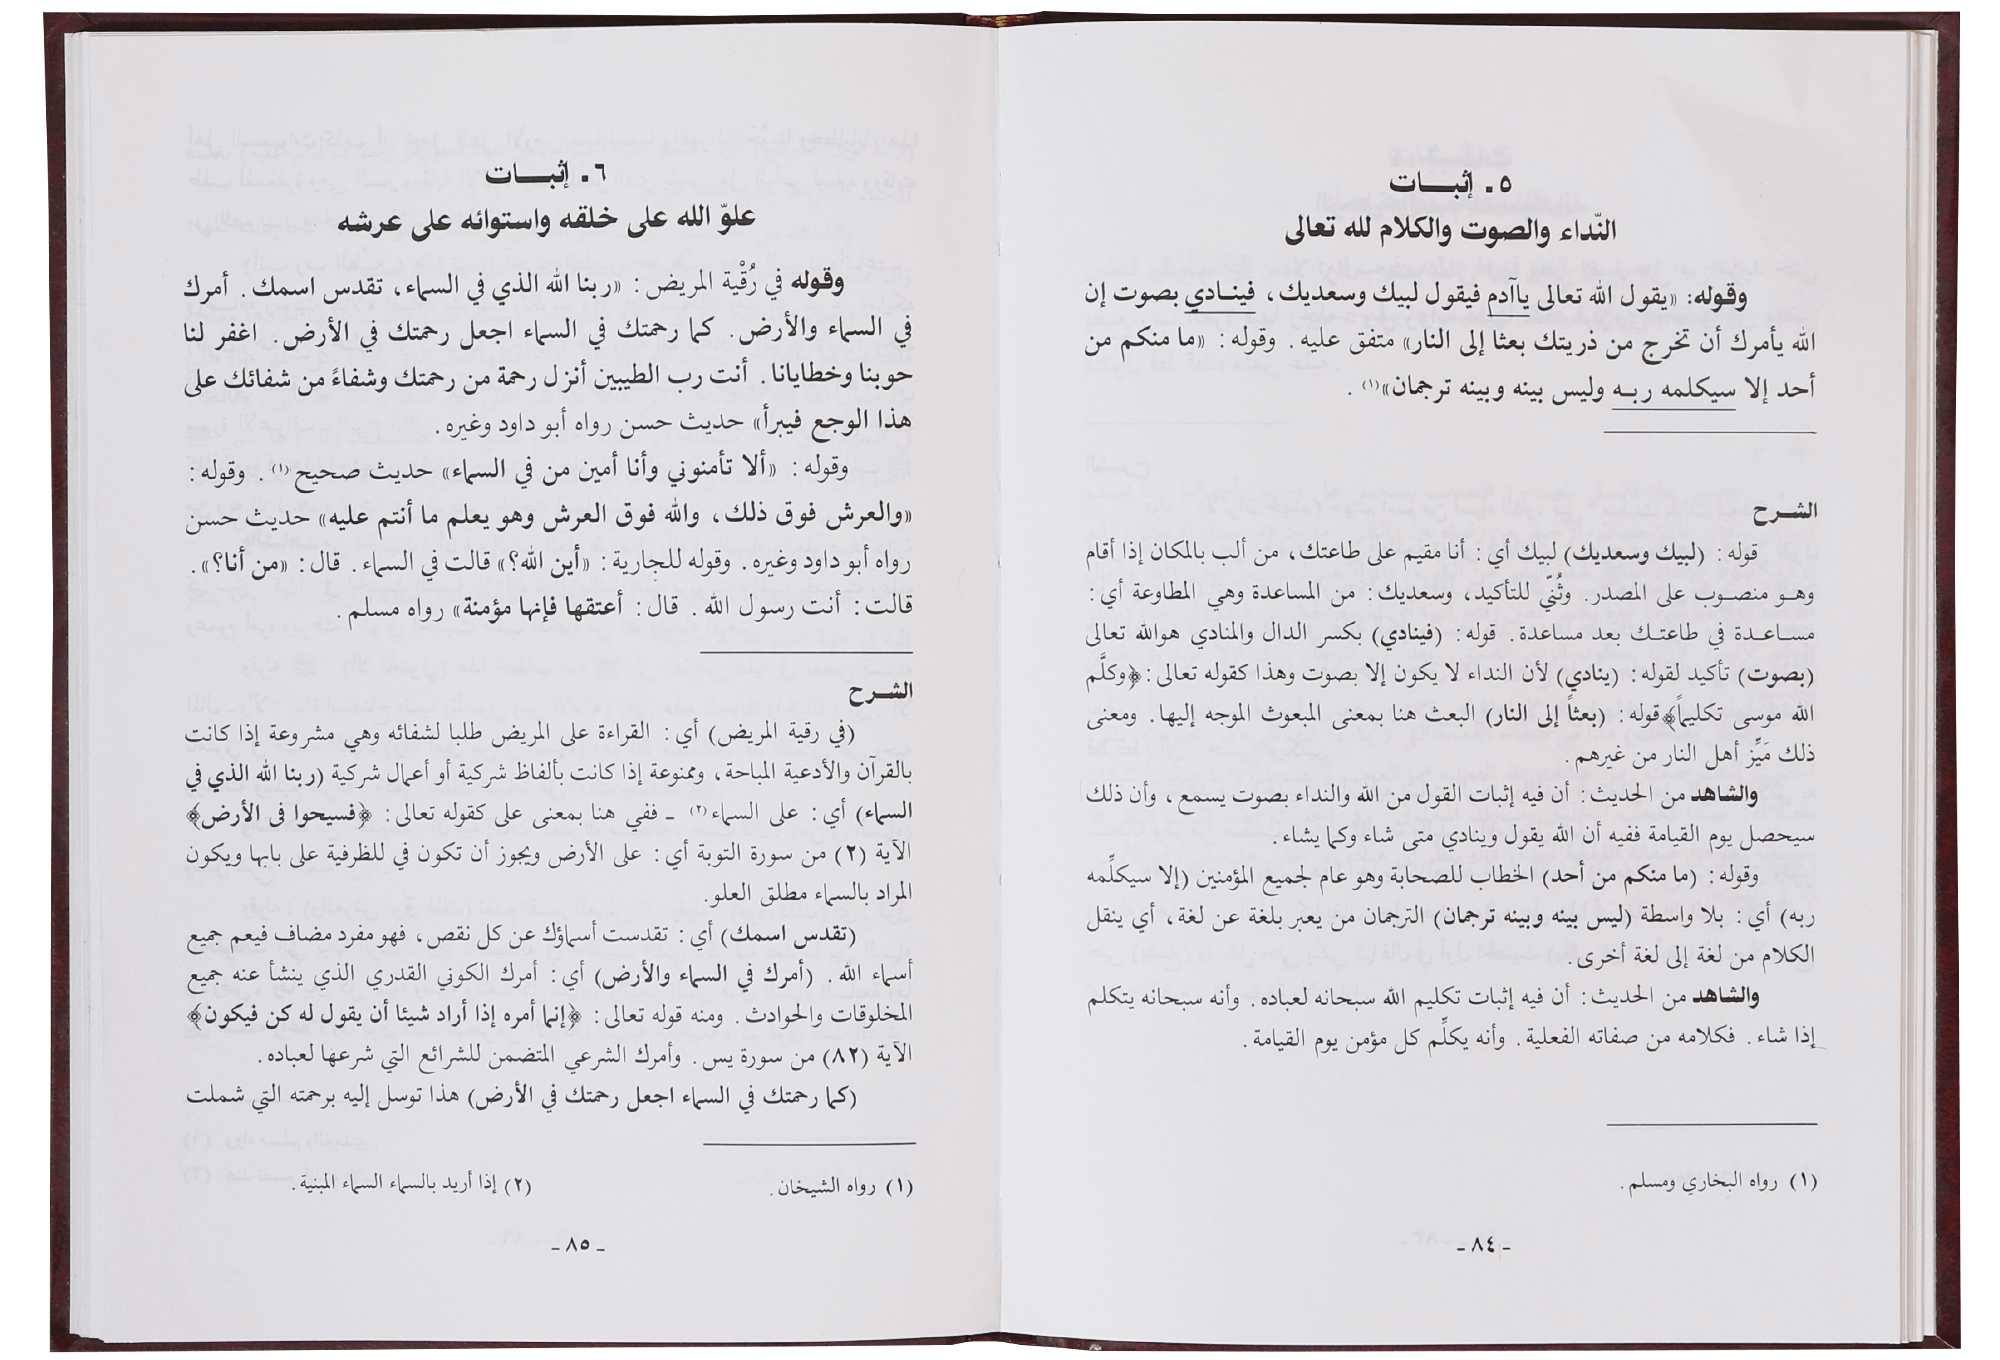 ٥ ـ إثبــــات
النّداء والصوت والكلام لله تعالى
وقوله: «يقول الله تعالى ياآدم فيقول لبيك وسعديك، فينـادي بصوت إن
الله يأمرك أن تخرج من ذريتك بعثا إلى النار» متفق عليه. وقوله: «ما منكم من
أحد إلا سيكلمه ربـه وليس بينه وبينه ترجمان»(١).
الشــرح
قوله: (لبيك وسعديك) لبيك أي: أنا مقيم على طاعتك، من ألب بالمكان إذا أقام
وهـو منصـوب على المصدر. وثُنّي للتأكيد، وسعديك: من المساعدة وهي المطاوعة أي:
مساعـدة في طاعتـك بعد مساعدة. قوله: (فينادي) بكسر الدال والمنادي هوالله تعالى
(بصوت) تأكيد لقوله: (ينادي) لأن النداء لا يكون إلا بصوت وهذا كقوله تعالى: ﴿وكلَّم
الله موسى تكليماً﴾ قوله: (بعثاً إلى النار) البعث هنا بمعنى المبعوث الموجه إليها. ومعنى
ذلك مَيِّز أهل النار من غيرهم.
والشاهد من الحديث: أن فيه إثبات القول من الله والنداء بصوت يسمع، وأن ذلك
سيحصل يوم القيامة ففيه أن الله يقول وينادي متى شاء وكما يشاء.
وقوله: (ما منكم من أحد) الخطاب للصحابة وهو عام لجميع المؤمنين (إلا سيكلِّمه
ربه) أي: بلا واسطة (ليس بينه وبينه ترجمان) الترجمان من يعبر بلغة عن لغة، أي ينقل
الكلام من لغة إلى لغة أخرى.
والشاهد من الحديث: أن فيه إثبات تكليم الله سبحانه لعباده. وأنه سبحانه يتكلم
إذا شاء. فكلامه من صفاته الفعلية. وأنه يكلِّم كل مؤمن يوم القيامة.
(١) رواه البخاري ومسلم.
- ٨٤ -
٦ ـ إثبــــات
علوّ الله على خلقه واستوائه على عرشه
وقوله في رُقْية المريض: «ربنا الله الذي في السماء، تقدس اسمك. أمرك
في السماء والأرض. كما رحمتك في السماء اجعل رحمتك في الأرض. اغفر لنا
حوبنا وخطايانا. أنت رب الطيبين أنزل رحمة من رحمتك وشفاءً من شفائك على
هذا الوجع فيبرأ» حديث حسن رواه أبو داود وغيره.
وقوله: «ألا تأمنوني وأنا أمين من في السماء» حديث صحيح(١). وقوله:
«والعرش فوق ذلك، والله فوق العرش وهو يعلم ما أنتم عليه» حديث حسن
رواه أبو داود وغيره. وقوله للجارية: «أين الله؟» قالت في السماء. قال: «من أنا؟».
قالت: أنت رسول الله. قال: أعتقها فإنها مؤمنة» رواه مسلم.
الشــرح
(في رقية المريض) أي: القراءة على المريض طلبا لشفائه وهي مشروعة إذا كانت
بالقرآن والأدعية المباحة، وممنوعة إذا كانت بألفاظ شركية أو أعمال شركية (ربنا الله الذي في
السماء) أي: على السماء(٢) ـ ففي هنا بمعنى على كقوله تعالى: ﴿فسيحوا فى الأرض﴾
الآية (٢) من سورة التوبة أي: على الأرض ويجوز أن تكون في للظرفية على بابها ويكون
المراد بالسماء مطلق العلو.
(تقدس اسمك) أي: تقدست أسماؤك عن كل نقص، فهو مفرد مضاف فيعم جميع
أسماء الله. (أمرك في السماء والأرض) أي: أمرك الكوني القدري الذي ينشأ عنه جميع
المخلوقات والحوادث. ومنه قوله تعالى: ﴿إنما أمره إذا أراد شيئا أن يقول له كن فيكون﴾
الآية (٨٢) من سورة يس. وأمرك الشرعي المتضمن للشرائع التي شرعها لعباده.
(كما رحمتك في السماء اجعل رحمتك في الأرض) هذا توسل إليه برحمته التي شملت
(١) رواه الشيخان. (٢) إذا أريد بالسماء السماء المبنية.
- ٨٥ -